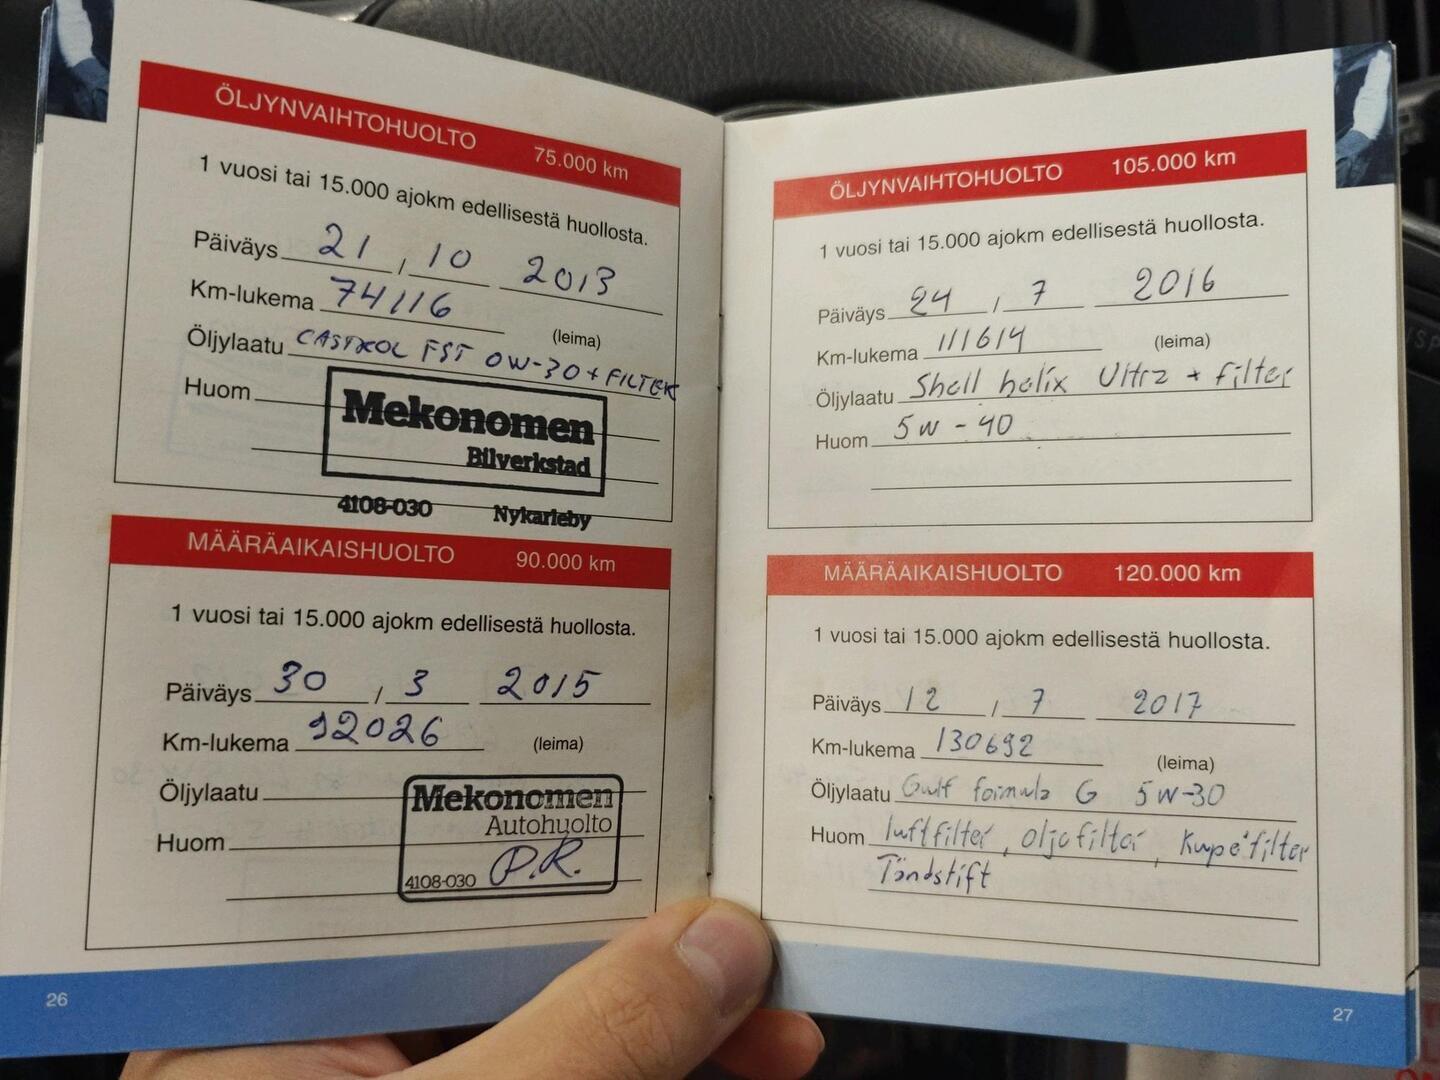 ÖLJYNVAIHTOHUOLTO 75.000 km
1 vuosi tai 15.000 ajokm edellisestä huollosta.
Päiväys 21 / 10 2013
Km-lukema 74116
(leima)
Öljylaatu CASTROL FST 0W-30 + FILTER
Huom
Mekonomen
Bilverkstad
4108-030 Nykarleby
MÄÄRÄAIKAISHUOLTO 90.000 km
1 vuosi tai 15.000 ajokm edellisestä huollosta.
Päiväys 30 / 3 2015
Km-lukema 92026
(leima)
Öljylaatu
Huom
Mekonomen
Autohuolto
4108-030 P.R.
26
ÖLJYNVAIHTOHUOLTO 105.000 km
1 vuosi tai 15.000 ajokm edellisestä huollosta.
Päiväys 24 / 7 2016
Km-lukema 111614
(leima)
Öljylaatu Shell helix Ultra + filter
Huom 5W-40
MÄÄRÄAIKAISHUOLTO 120.000 km
1 vuosi tai 15.000 ajokm edellisestä huollosta.
Päiväys 12 / 7 2017
Km-lukema 130692
(leima)
Öljylaatu Gulf formula G 5W-30
Huom luftfilter, oljefilter, Kupéfilter
Tändstift
27